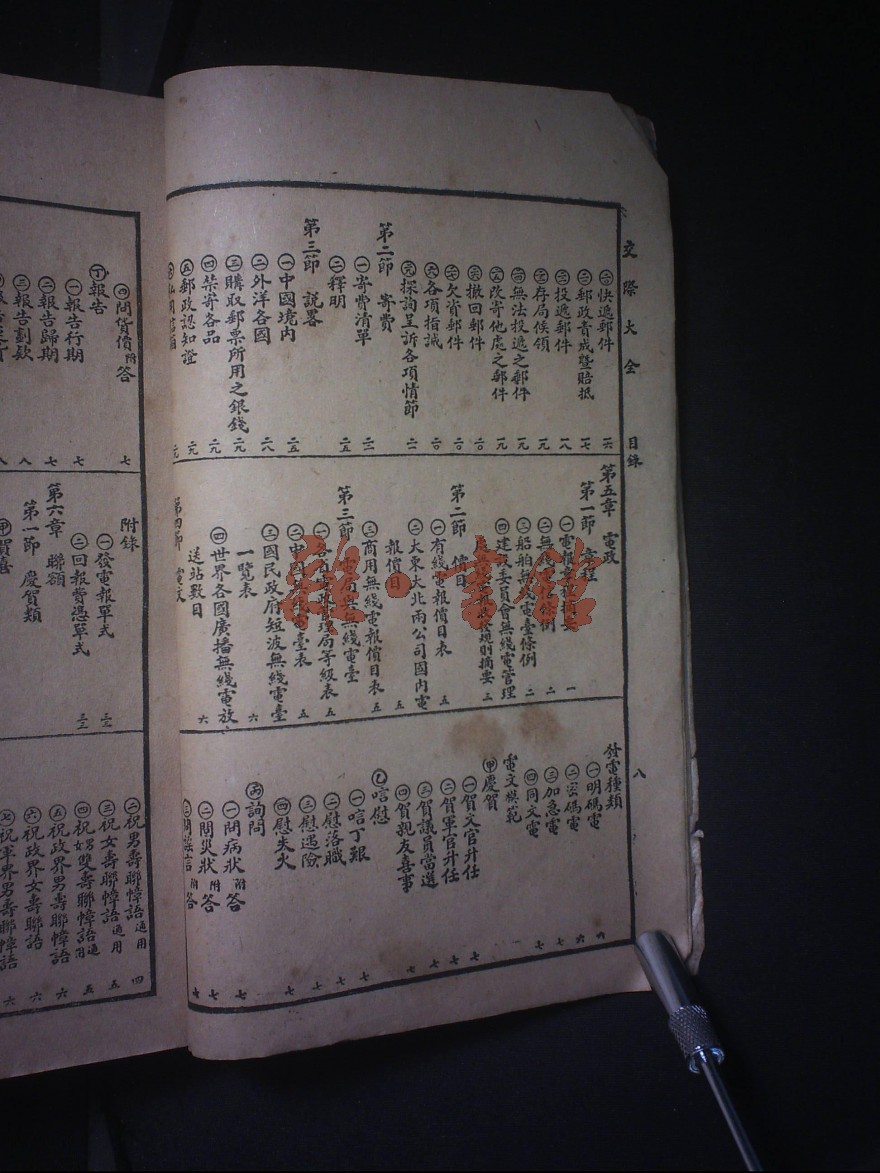 交際大全 目錄 八
快遞郵件 一六
郵政責成暨賠抵 一七
投遞郵件 一八
存局候領 一九
無法投遞之郵件 一九
改寄他處之郵件 一九
撤回郵件 二〇
欠資郵件 二〇
各項指誡 二〇
探詢呈訴各項情節 二一
第二節 寄費
㊀寄費清單
㊁釋明 二五
第三節 說畧
㊀中國境內 二五
㊁外洋各國 二八
㊂購取郵票所用之銀錢 二九
㊃禁寄各品 二九
㊄郵政認知證 二九
第五章 電政
第一節 章程
㊀電報 一
㊁無 條例 二
㊂船舶無 電臺條例 二
㊃建設委員會無綫電管理
規則摘要 三
第二節 價目
㊀有綫電報價目表 五
㊁大東大北兩公司國內電
報價目 五
㊂商用無綫電報價目表 五
第三節 電局與無綫電臺
㊀各省 管理局等級表 五
㊁中國 電臺表 五
㊂國民政府短波無綫電臺
一覽表 六
㊃世界各國廣播無綫電放
送站數目 六
第四節 電文
發電種類 六
㊀明碼電 六
㊁密碼電 六
㊂加急電 七
㊃同文電 七
電文模範
㊙慶賀
㊀賀文官升任 七
㊁賀軍官升任 七
㊂賀議員當選 七
㊃賀親友喜事 七
乙唁慰
㊀唁丁艱 七
㊁慰落職 七
㊂慰遇險 七
㊃慰失火 七
丙詢問
㊀問病狀附答 七
㊁問災狀附答 七
附答 七
㊃問貨價附答 七
丁報告
㊀報告行期 七
㊁報告歸期 七
㊂報告劃欵 八
附錄
㊀發電報單式
㊁回報費憑單式
第六章 聯額
第一節 慶賀類
甲賀喜
㊁祝男壽聯幛語通用 四
㊂祝女壽聯幛語通用 五
㊃祝雙壽聯幛語附通 五
㊄祝政界男壽聯幛語 六
㊅祝政界女壽聯語 六
㊆祝軍界男壽聯幛語 六